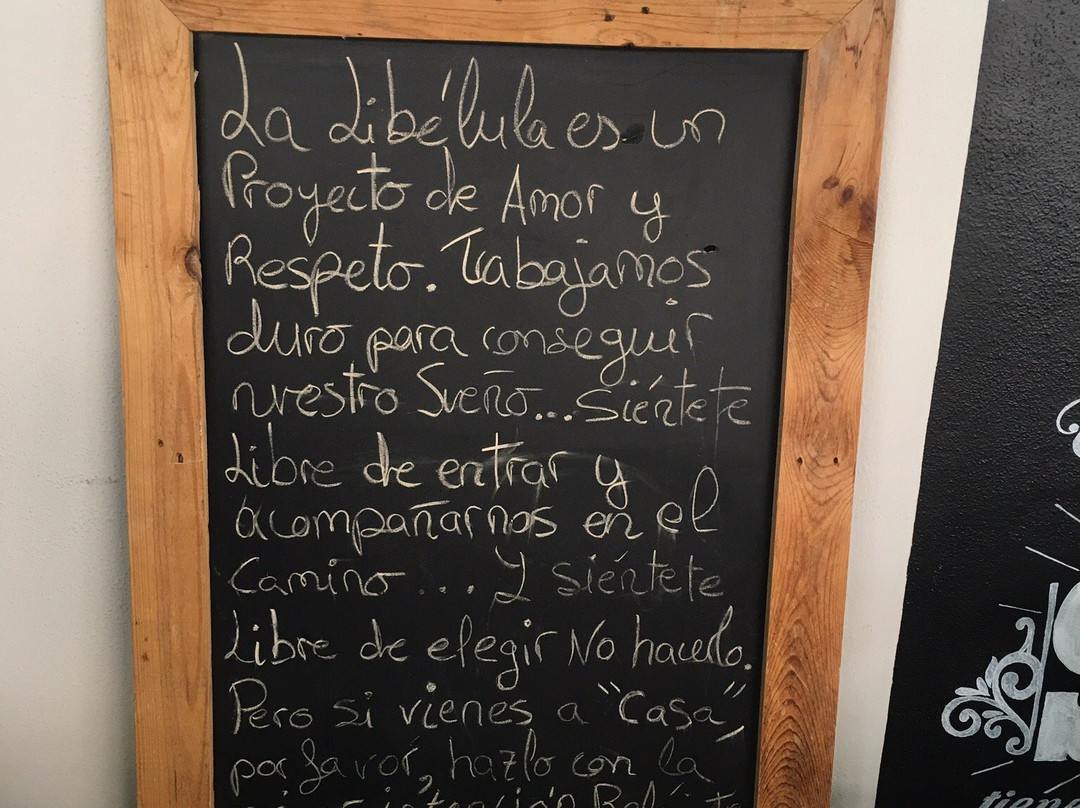 La Libélula es un
Proyecto de Amor y
Respeto. Trabajamos
duro para conseguir
nuestro Sueño... siéntete
Libre de entrar y
acompañarnos en el
Camino ... Y siéntete
Libre de elegir No hacerlo.
Pero si vienes a "Casa",
por favor, hazlo con la